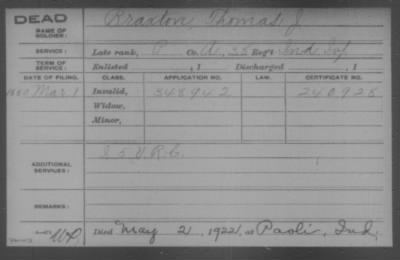 DEAD
NAME OF SOLDIER: Braxton, Thomas J.
SERVICE: Late rank, P Co. A, 35 Reg't Ind Inf
TERM OF SERVICE: Enlisted , 1 Discharged , 1
DATE OF FILING. CLASS. APPLICATION NO. LAW. CERTIFICATE NO.
1880 Mar 1 Invalid, 348942 240925
Widow,
Minor,
ADDITIONAL SERVICES: I 5 V.R.C.
REMARKS:
Died May 2, 1922, at Paoli, Ind.